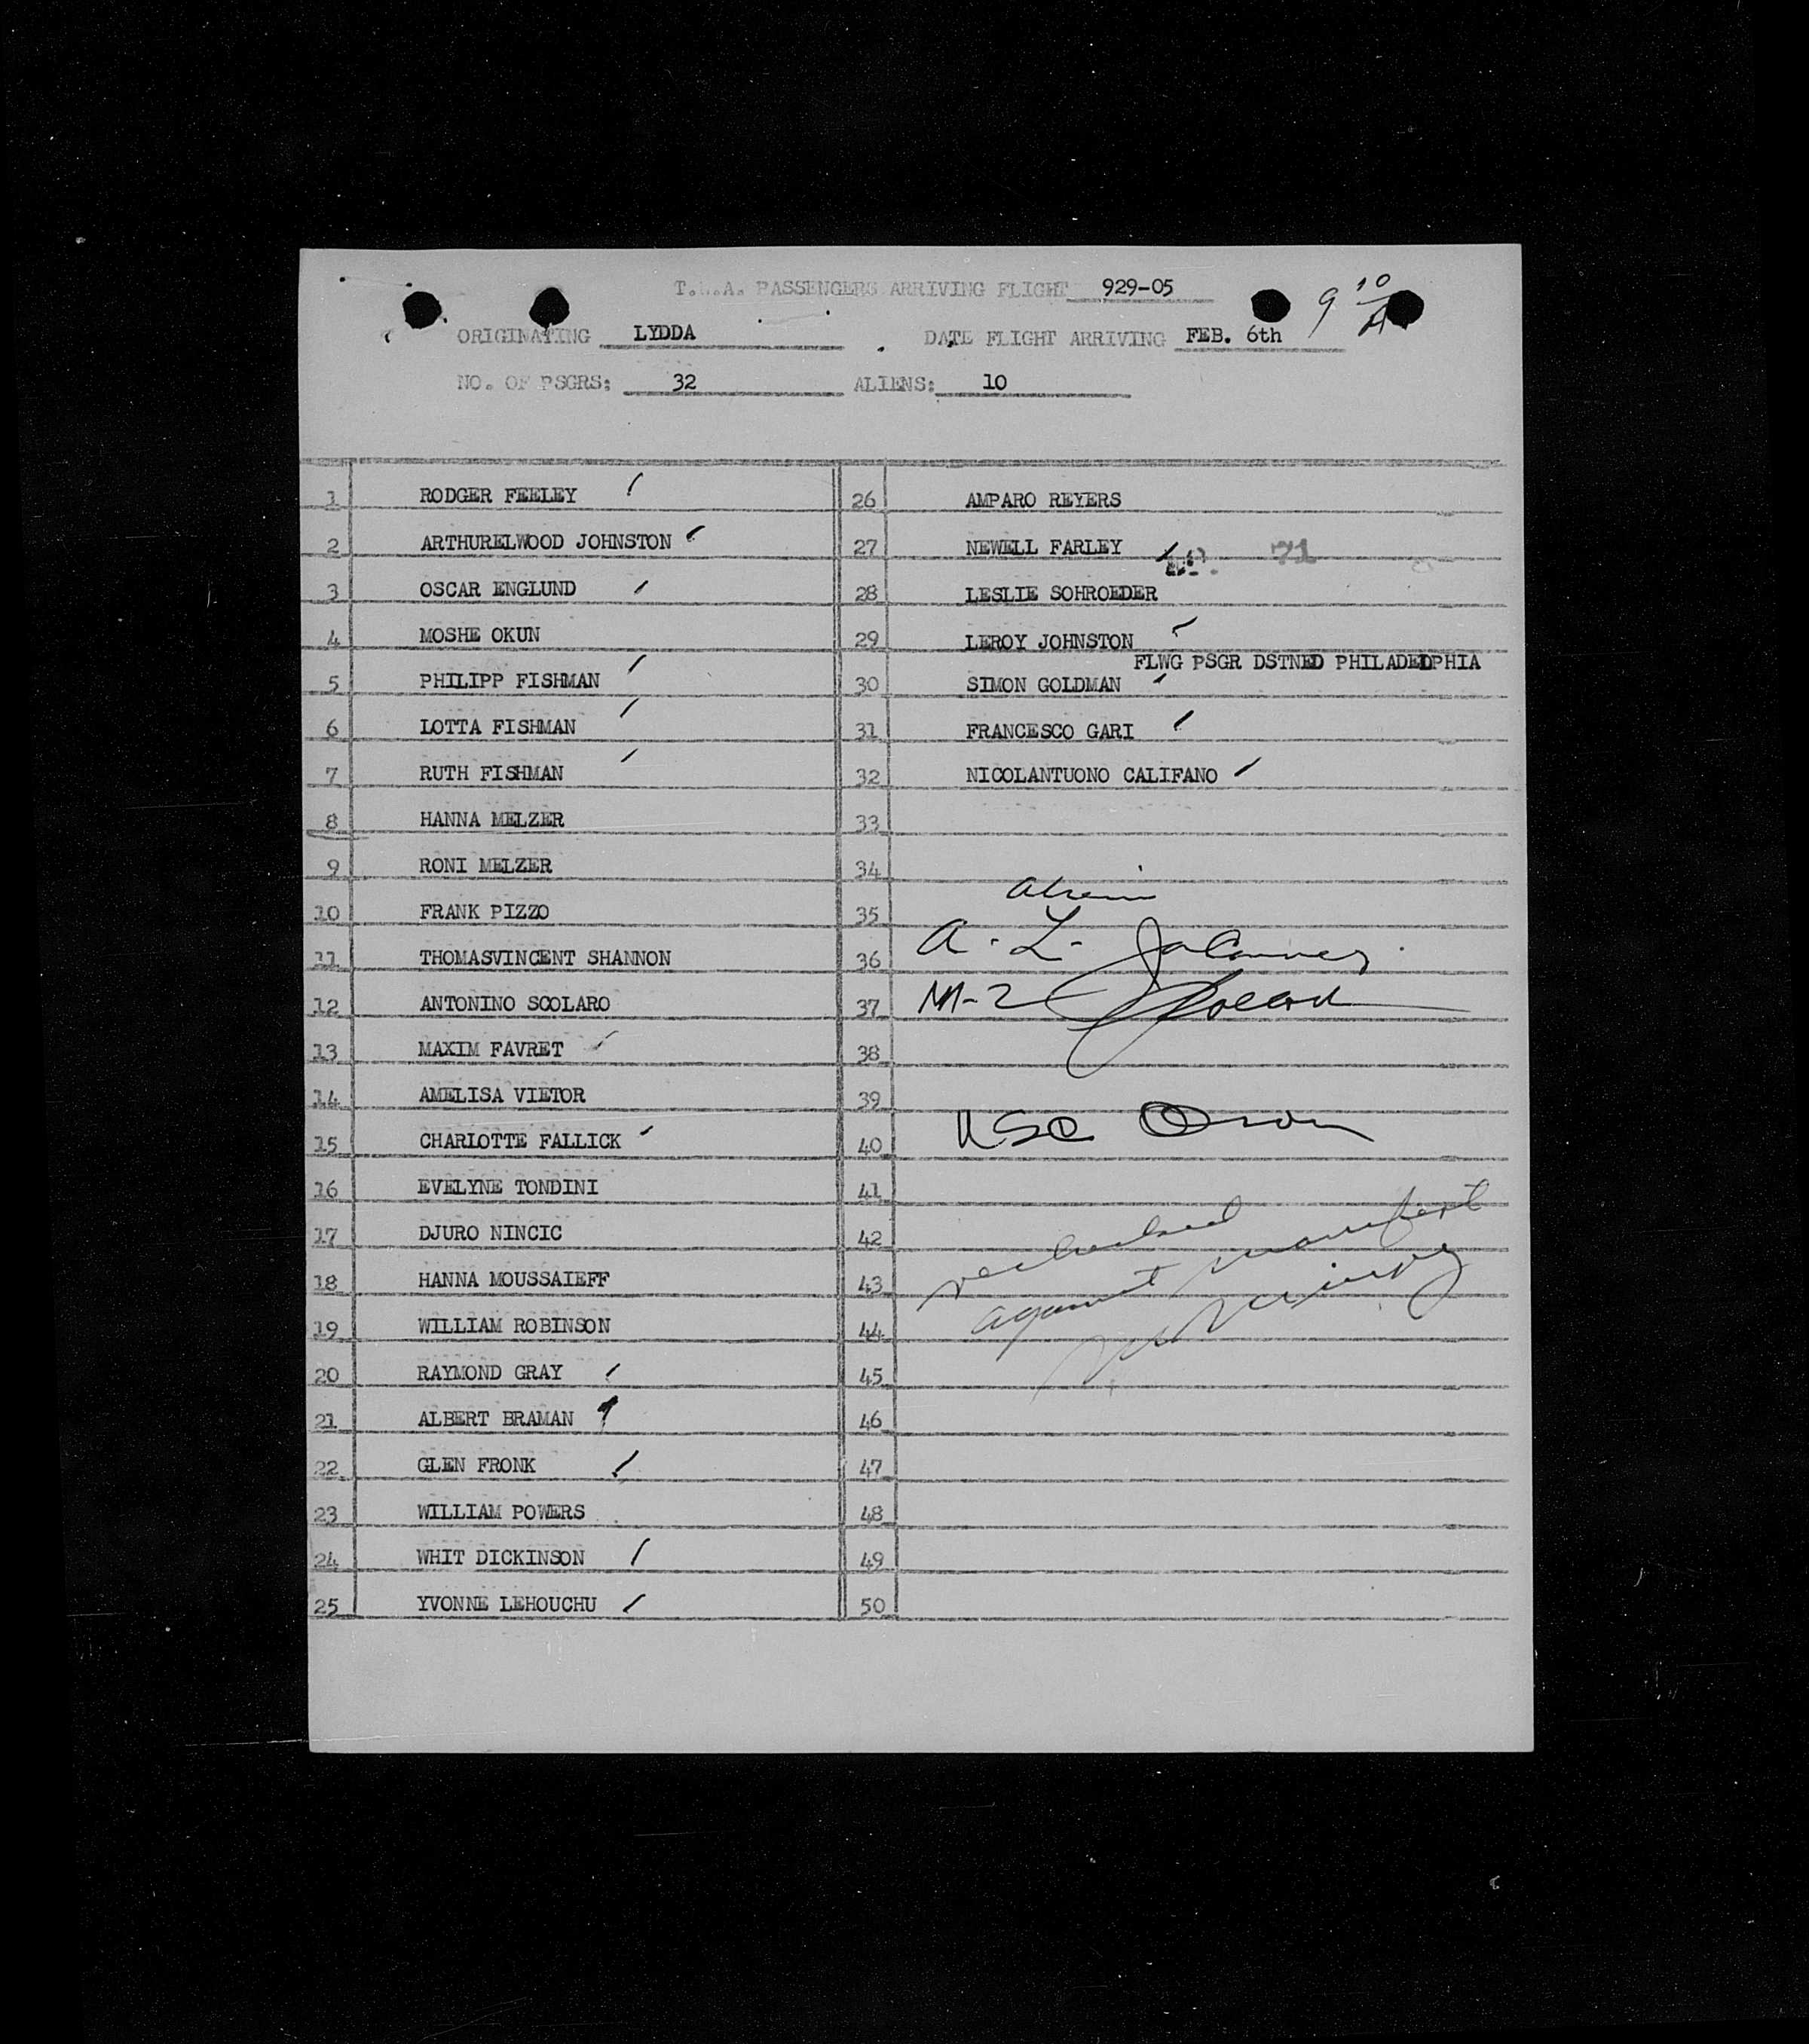 T.W.A. PASSENGERS ARRIVING FLIGHT 929-05
9 10/A
ORIGINATING LYDDA DATE FLIGHT ARRIVING FEB. 6th
NO. OF PSGRS: 32 ALIENS: 10
1 RODGER FEELEY
2 ARTHURELWOOD JOHNSTON
3 OSCAR ENGLUND
4 MOSHE OKUN
5 PHILIPP FISHMAN
6 LOTTA FISHMAN
7 RUTH FISHMAN
8 HANNA MELZER
9 RONI MELZER
10 FRANK PIZZO
11 THOMASVINCENT SHANNON
12 ANTONINO SCOLARO
13 MAXIM FAVRET
14 AMELISA VIETOR
15 CHARLOTTE FALLICK
16 EVELYNE TONDINI
17 DJURO NINCIC
18 HANNA MOUSSAIEFF
19 WILLIAM ROBINSON
20 RAYMOND GRAY
21 ALBERT BRAMAN
22 GLEN FRONK
23 WILLIAM POWERS
24 WHIT DICKINSON
25 YVONNE LEHOUCHU
26 AMPARO REYERS
27 NEWELL FARLEY
71
28 LESLIE SOHROEDER
29 LEROY JOHNSTON
FLWG PSGR DSTNED PHILADEDPHIA
30 SIMON GOLDMAN
31 FRANCESCO GARI
32 NICOLANTUONO CALIFANO
33
34
35
36 A. L.
37 M-2
38
39
40 USC
41
42 rechecked
43 against manifest
44
45
46
47
48
49
50